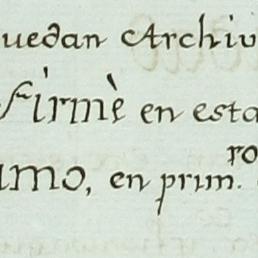 uedan Archiv
Firmè en esta
amo, en prim.ro